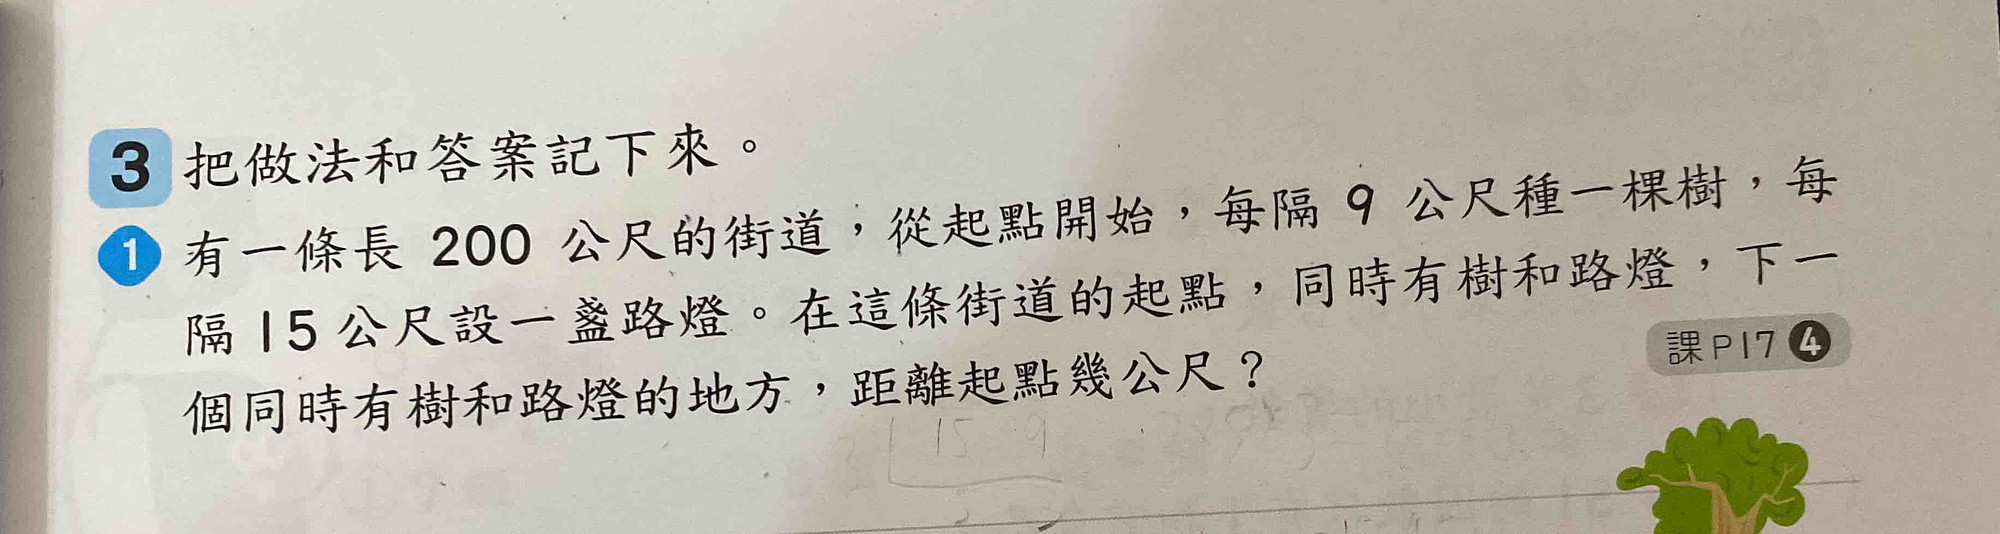 3 把做法和答案記下來。
1 有一條長 200 公尺的街道，從起點開始，每隔 9 公尺種一棵樹，每
隔 15 公尺設一盞路燈。在這條街道的起點，同時有樹和路燈，下一
個同時有樹和路燈的地方，距離起點幾公尺？
課P17 4
15 9